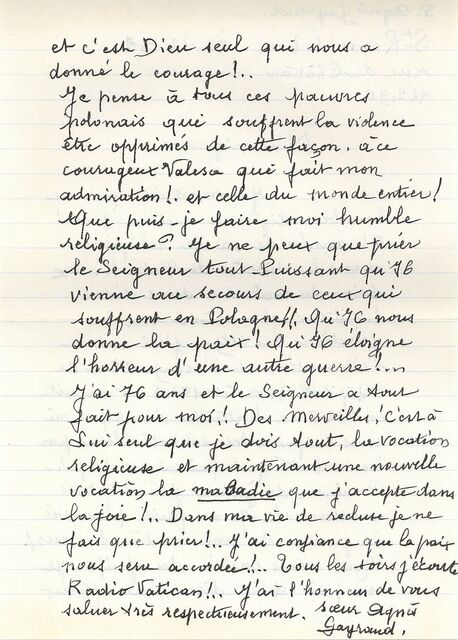 et c'est Dieu seul qui nous a
donné le courage!..
Je pense à tous ces pauvres
polonais qui souffrent la violence
être opprimés de cette façon. à ce
courageux Valesa qui fait mon
admiration!. et celle du monde entier!
Que puis-je faire moi humble
religieuse? Je ne peux que prier
le Seigneur tout-Puissant qu'Il
vienne au secours de ceux qui
souffrent en Pologne!!. Qu'Il nous
donne la paix! Qu'Il éloigne
l'horreur d'une autre guerre!...
J'ai 76 ans et le Seigneur a tout
fait pour moi!. Des Merveilles! C'est à
Lui seul que je dois tout, la vocation
religieuse et maintenant une nouvelle
vocation la maladie que j'accepte dans
la joie!.. Dans ma vie de recluse je ne
fais que prier!.. J'ai confiance que la paix
nous sera accordée!.. Tous les soirs j'écoute
Radio Vatican!.. J'ai l'honneur de vous
saluer très respectueusement. sœur Agnès
Gayraud.